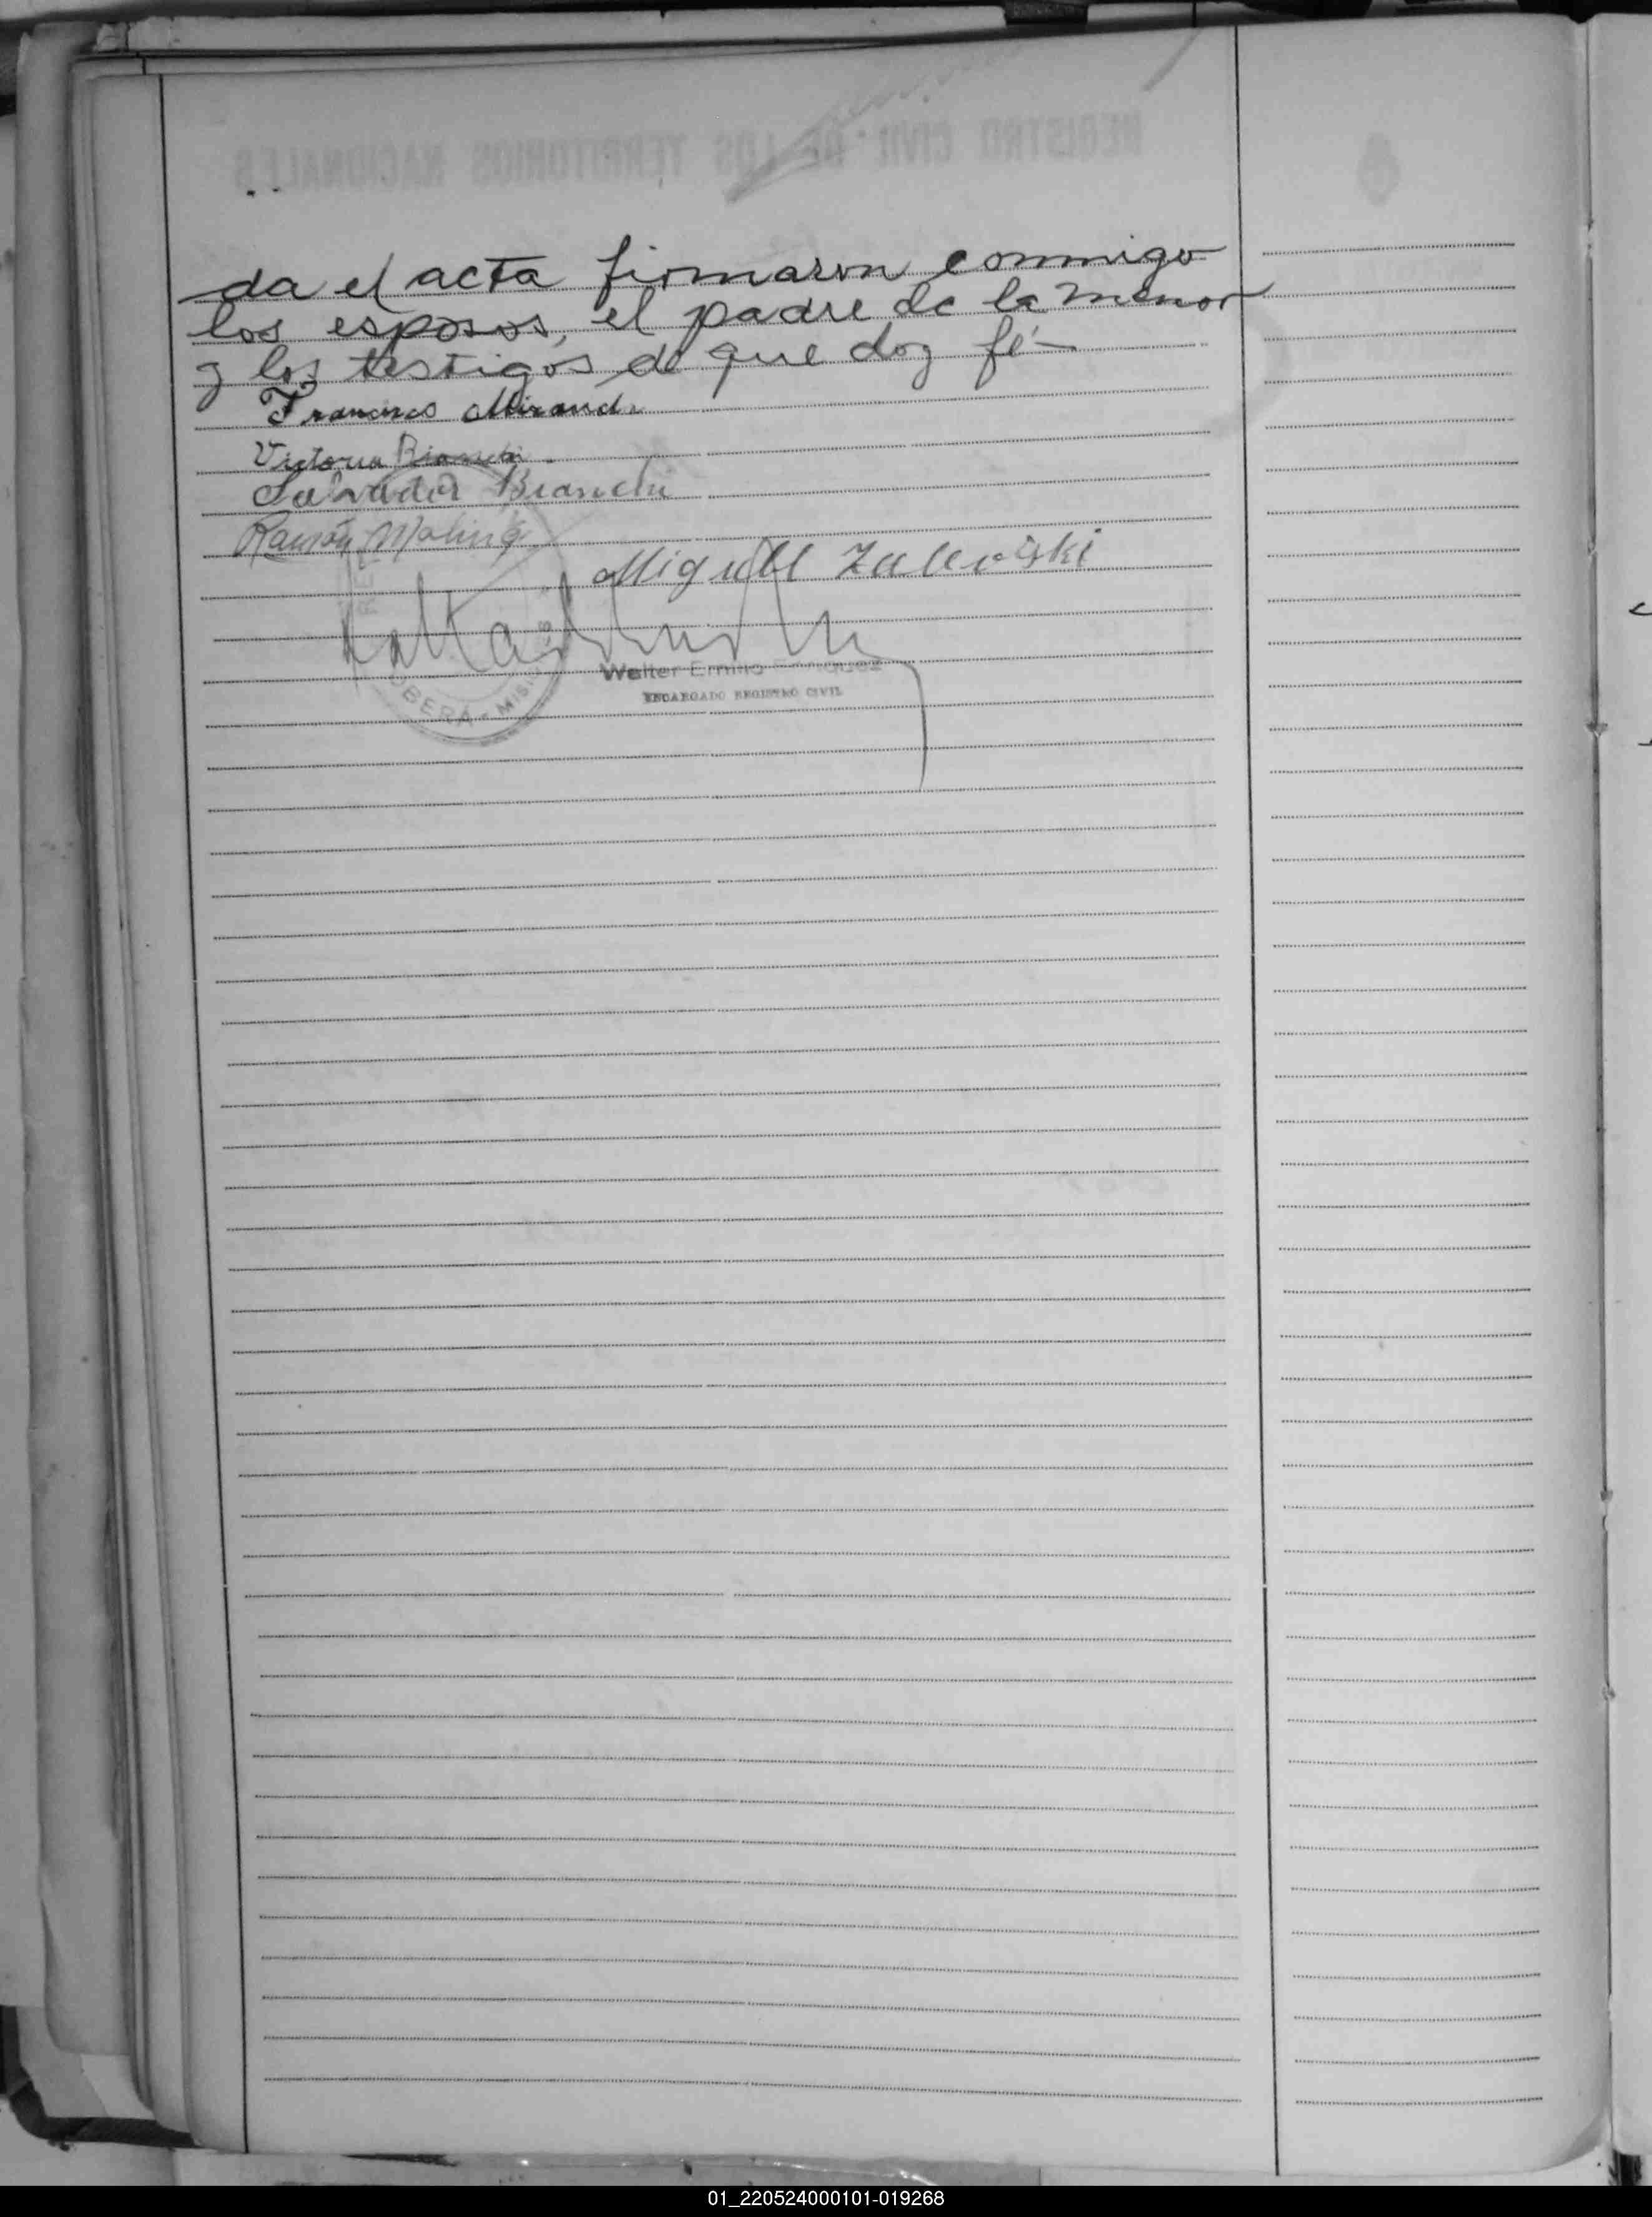 da el acta firmaron conmigo
los esposos, el padre de la menor
y los testigos de que doy fé-
Francisco Miranda
Victoria Bianchi
Salvador Bianchi
Ramón Molina
Miguel Zaleviski
Walter Emilio Enriquez
ENCARGADO REGISTRO CIVIL
OBERA - MISIONES
01_220524000101-019268